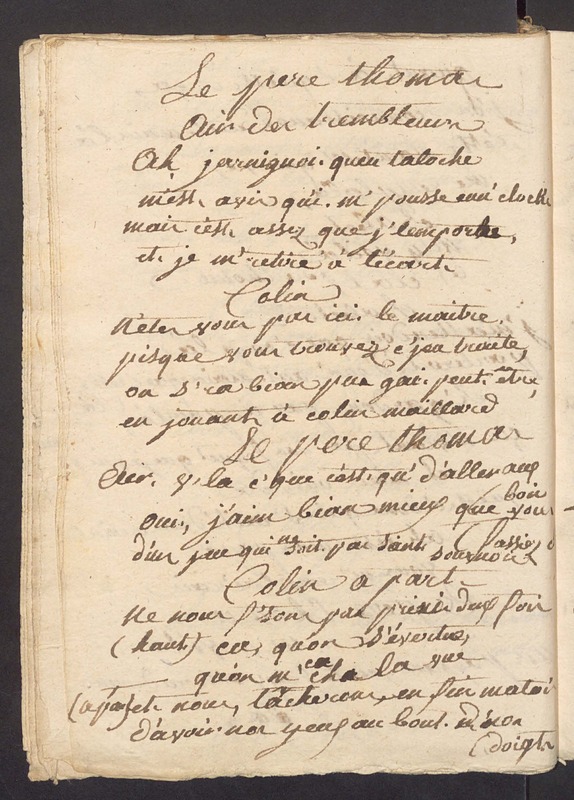 Le pere thomas
Air des trembleurs
Ah, jarniguoi. queu taloche
m'est, avis qu'i. m' pousse eun' cloche
mais c'est, assez que j' l'emporte,
et, je m' retire à l'écart
Colin
N'etes vous pas ici. le maitre,
pisque vous trouvez c' jeu traite,
on s'ra bian pus gai. peut, être,
en jouant, à colin maillard
Le pere thomas
Air. v'la c' que c'est, qu' d'aller aux
bois
oui, j'aim bian mieux que vous
d'un jeu qui ne soit pas tant sournois
Colin a part
ne nous f'sons pas prendre deux fois
(haut) ça, qu'on s'évertue,
qu'on m' cache la vue
(apart) et nous, tâcherons, en fin matoi
d'avoir nos yeux au bout. d' nos
doigts